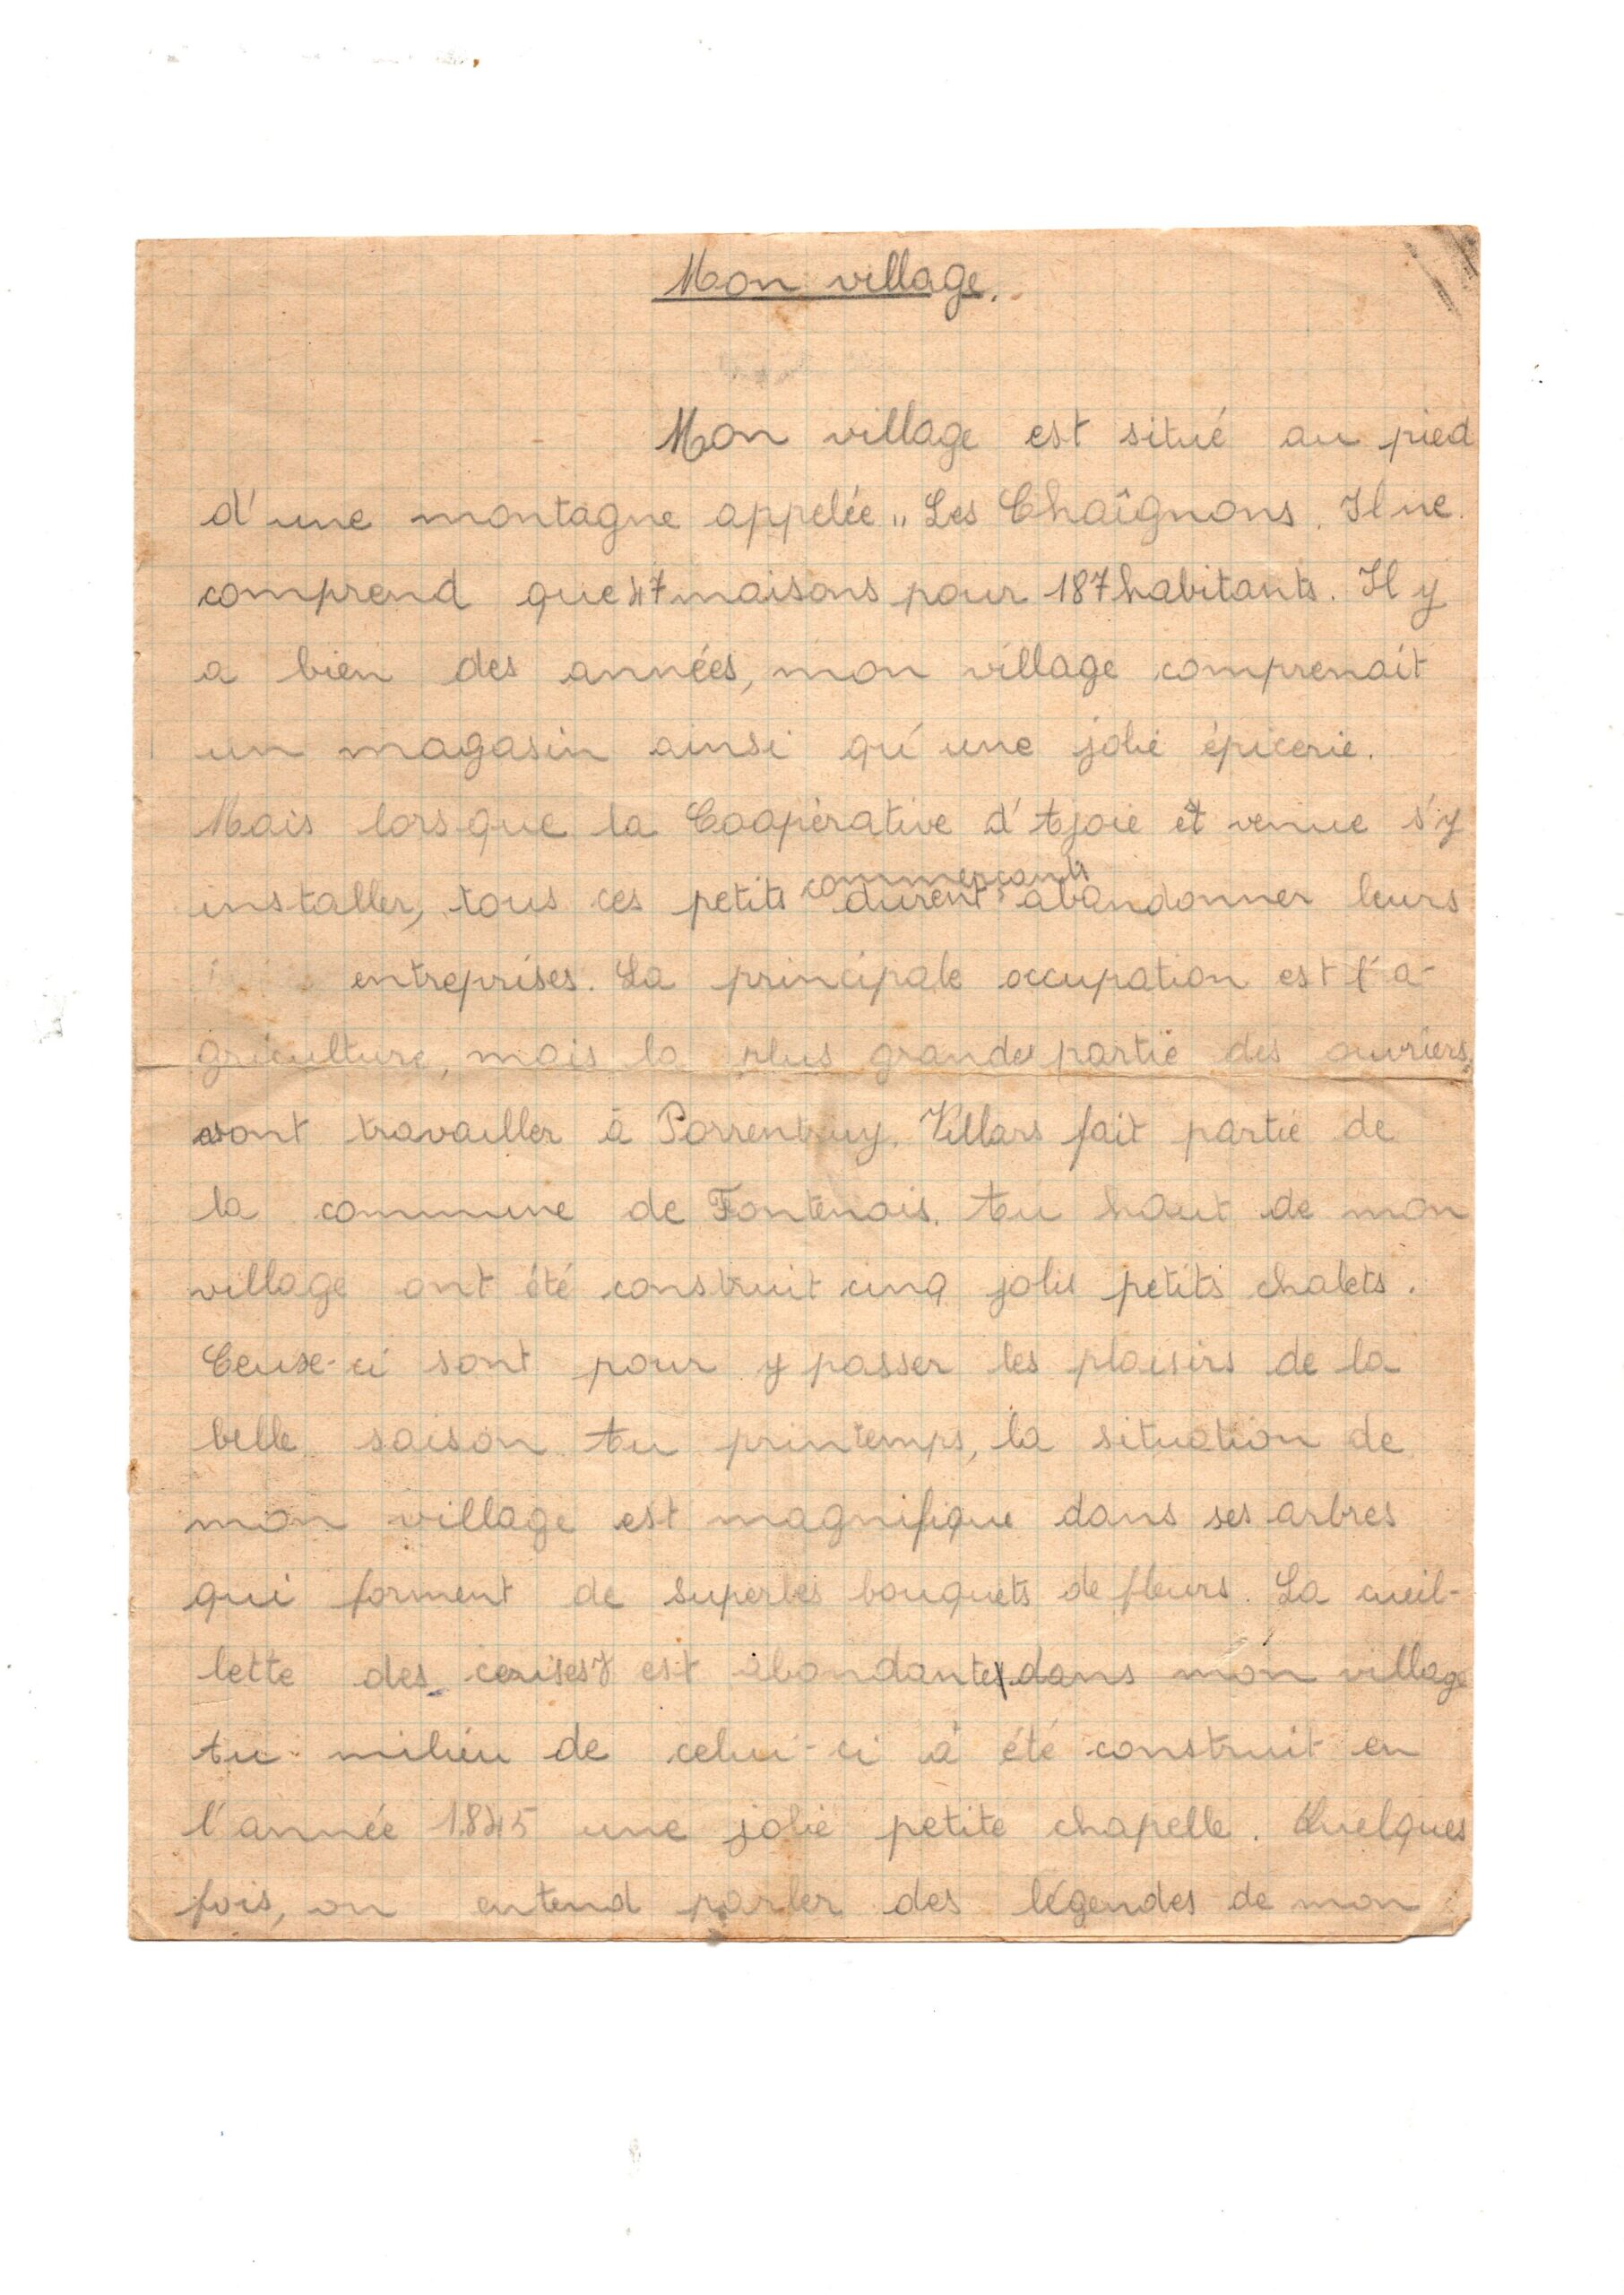 Mon village.
Mon village est situé au pied
d'une montagne appelée „ Les Chaîgnons. Il ne
comprend que 47 maisons pour 187 habitants. Il y
a bien des années, mon village comprenait
un magasin ainsi qu'une jolie épicerie.
Mais lorsque la Coopérative d'Ajoie et venue s'y
installer, tous ces petits commerçants durent abandonner leurs
entreprises. La principale occupation est l'a-
griculture, mais la plus grande partie des ouvriers
vont travailler à Porrentruy. Villars fait partie de
la commune de Fontenais. Au haut de mon
village ont été construit cinq jolis petits chalets.
Ceux-ci sont pour y passer les plaisirs de la
belle saison. Au printemps, la situation de
mon village est magnifique dans ses arbres
qui forment de superbes bouquets de fleurs. La cueil-
lette des cerises est abondante dans mon village
Au milieu de celui-ci à été construit en
l'année 1845 une jolie petite chapelle. Quelques
fois, on entend parler des légendes de mon